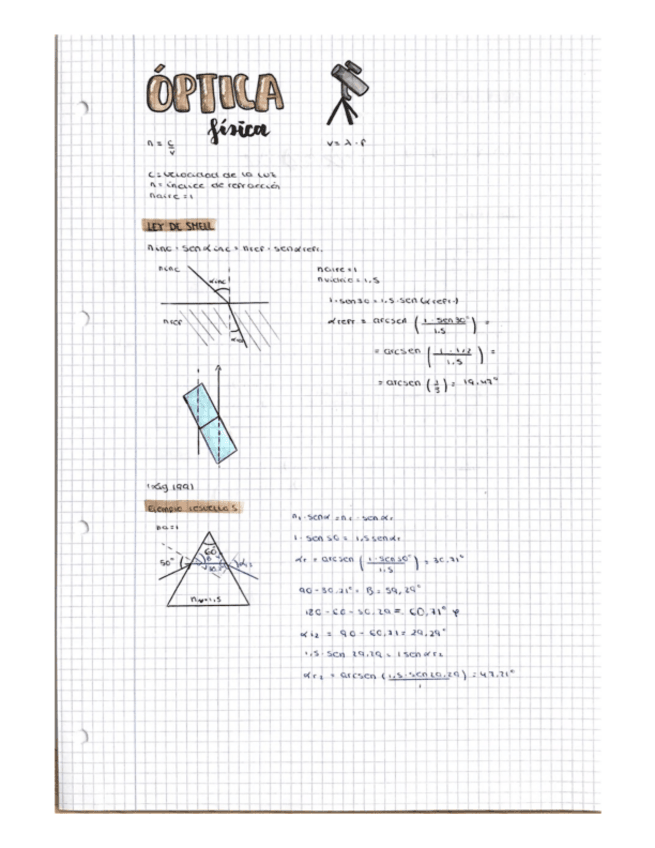 ÓPTICA
física
n = c/v
v = λ · f
c = velocidad de la luz
n = índice de refracción
naire = 1
LEY DE SNELL
ninc · sen αinc = nref · sen αrefr.
ninc
αinc
nref
naire = 1
nvidrio = 1,5
1 · sen 30 = 1,5 · sen (αrefr)
αrefr = arcsen (1 · sen 30° / 1,5) =
= arcsen (1 · 1/2 / 1,5) =
= arcsen (1/3) = 19,47°
pág 199
Ejemplo resuelto 5
na = 1
60
50°
nv = 1,5
n1 · sen α = n2 · sen αr
1 · sen 50 = 1,5 sen αr
αr = arcsen (1 · sen 50° / 1,5) = 30,71°
90 - 30,71° = B = 59,29°
180 - 60 - 59,29 = 60,71°
αi2 = 90 - 60,71 = 29,29°
1,5 · sen 29,29 = 1 sen αr2
αr2 = arcsen (1,5 · sen 29,29 / 1) = 47,21°